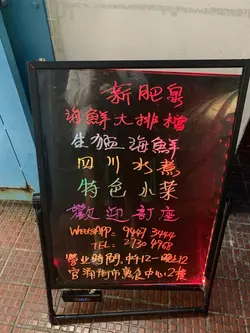 新肥泉
海鮮大排檔
生猛海鮮
四川水煮
特色小菜
歡迎訂座
WHATSAPP= 9447 3444
TEL= 2730 4968
營業時間
官涌街市熟食中心2樓